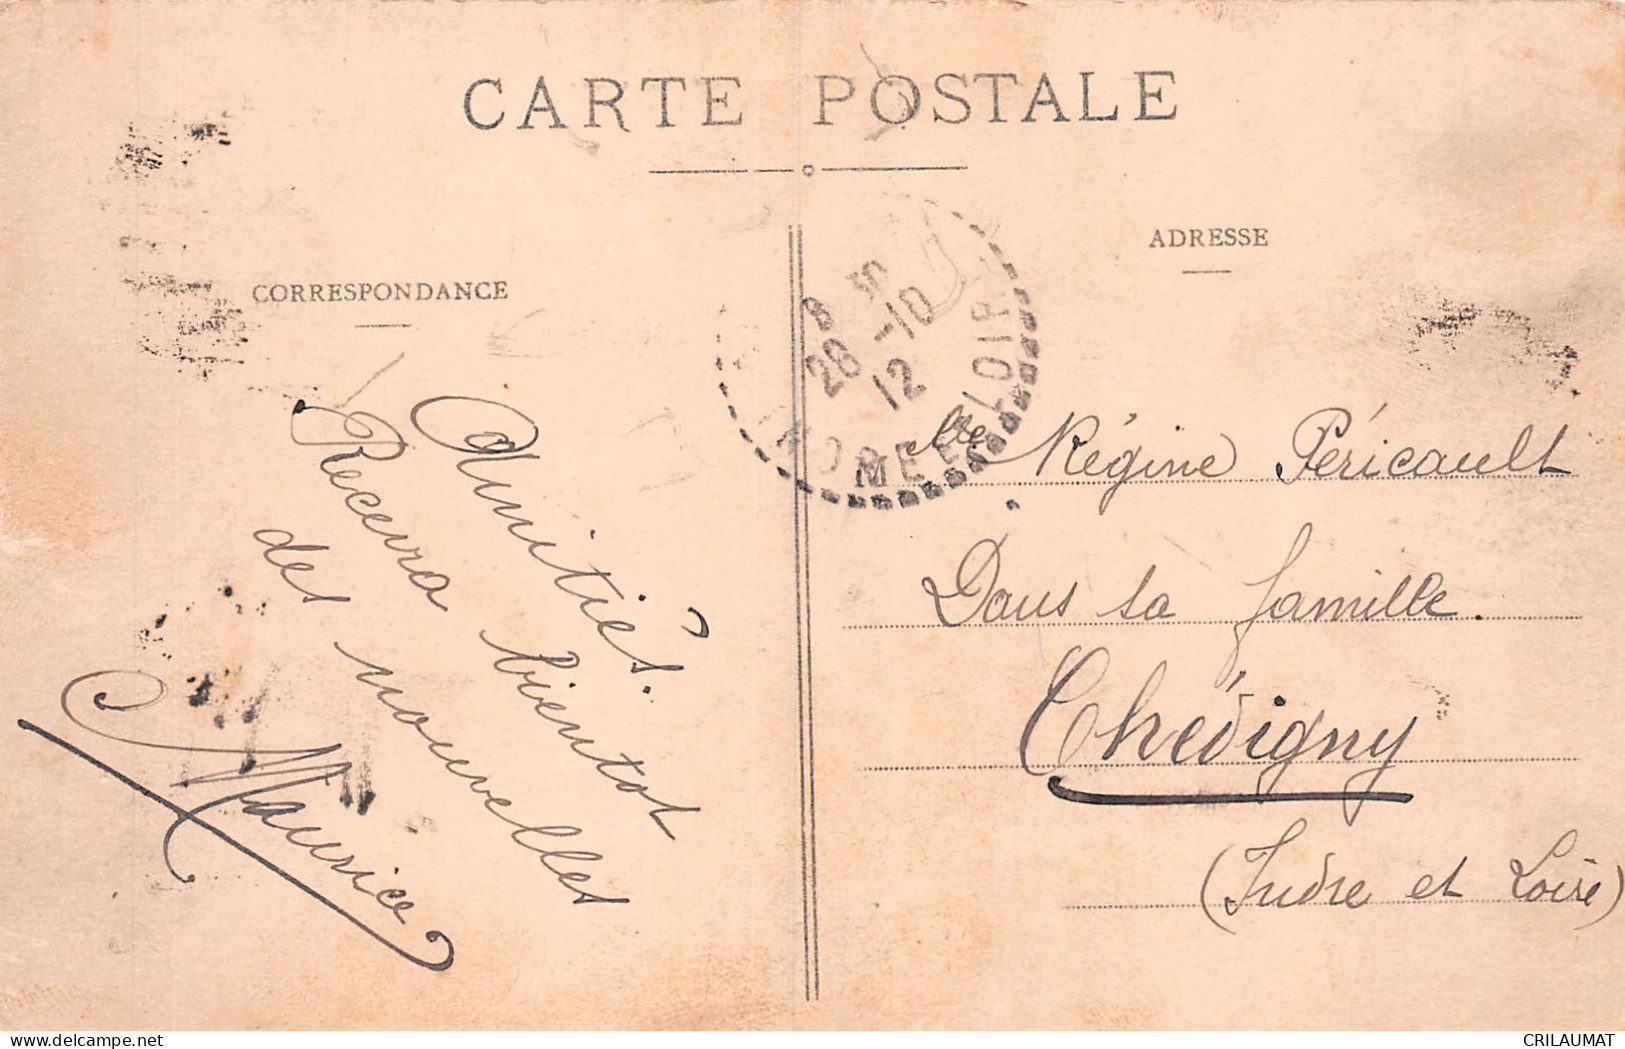 CARTE POSTALE
CORRESPONDANCE
ADRESSE
8 30
26 -10
12
LOIR
Amitiés.
Recevra bientot
des nouvelles
Maurice
Mlle Régine Péricault
Dans sa famille.
Chédigny
(Indre et Loire)
CRILAUMAT